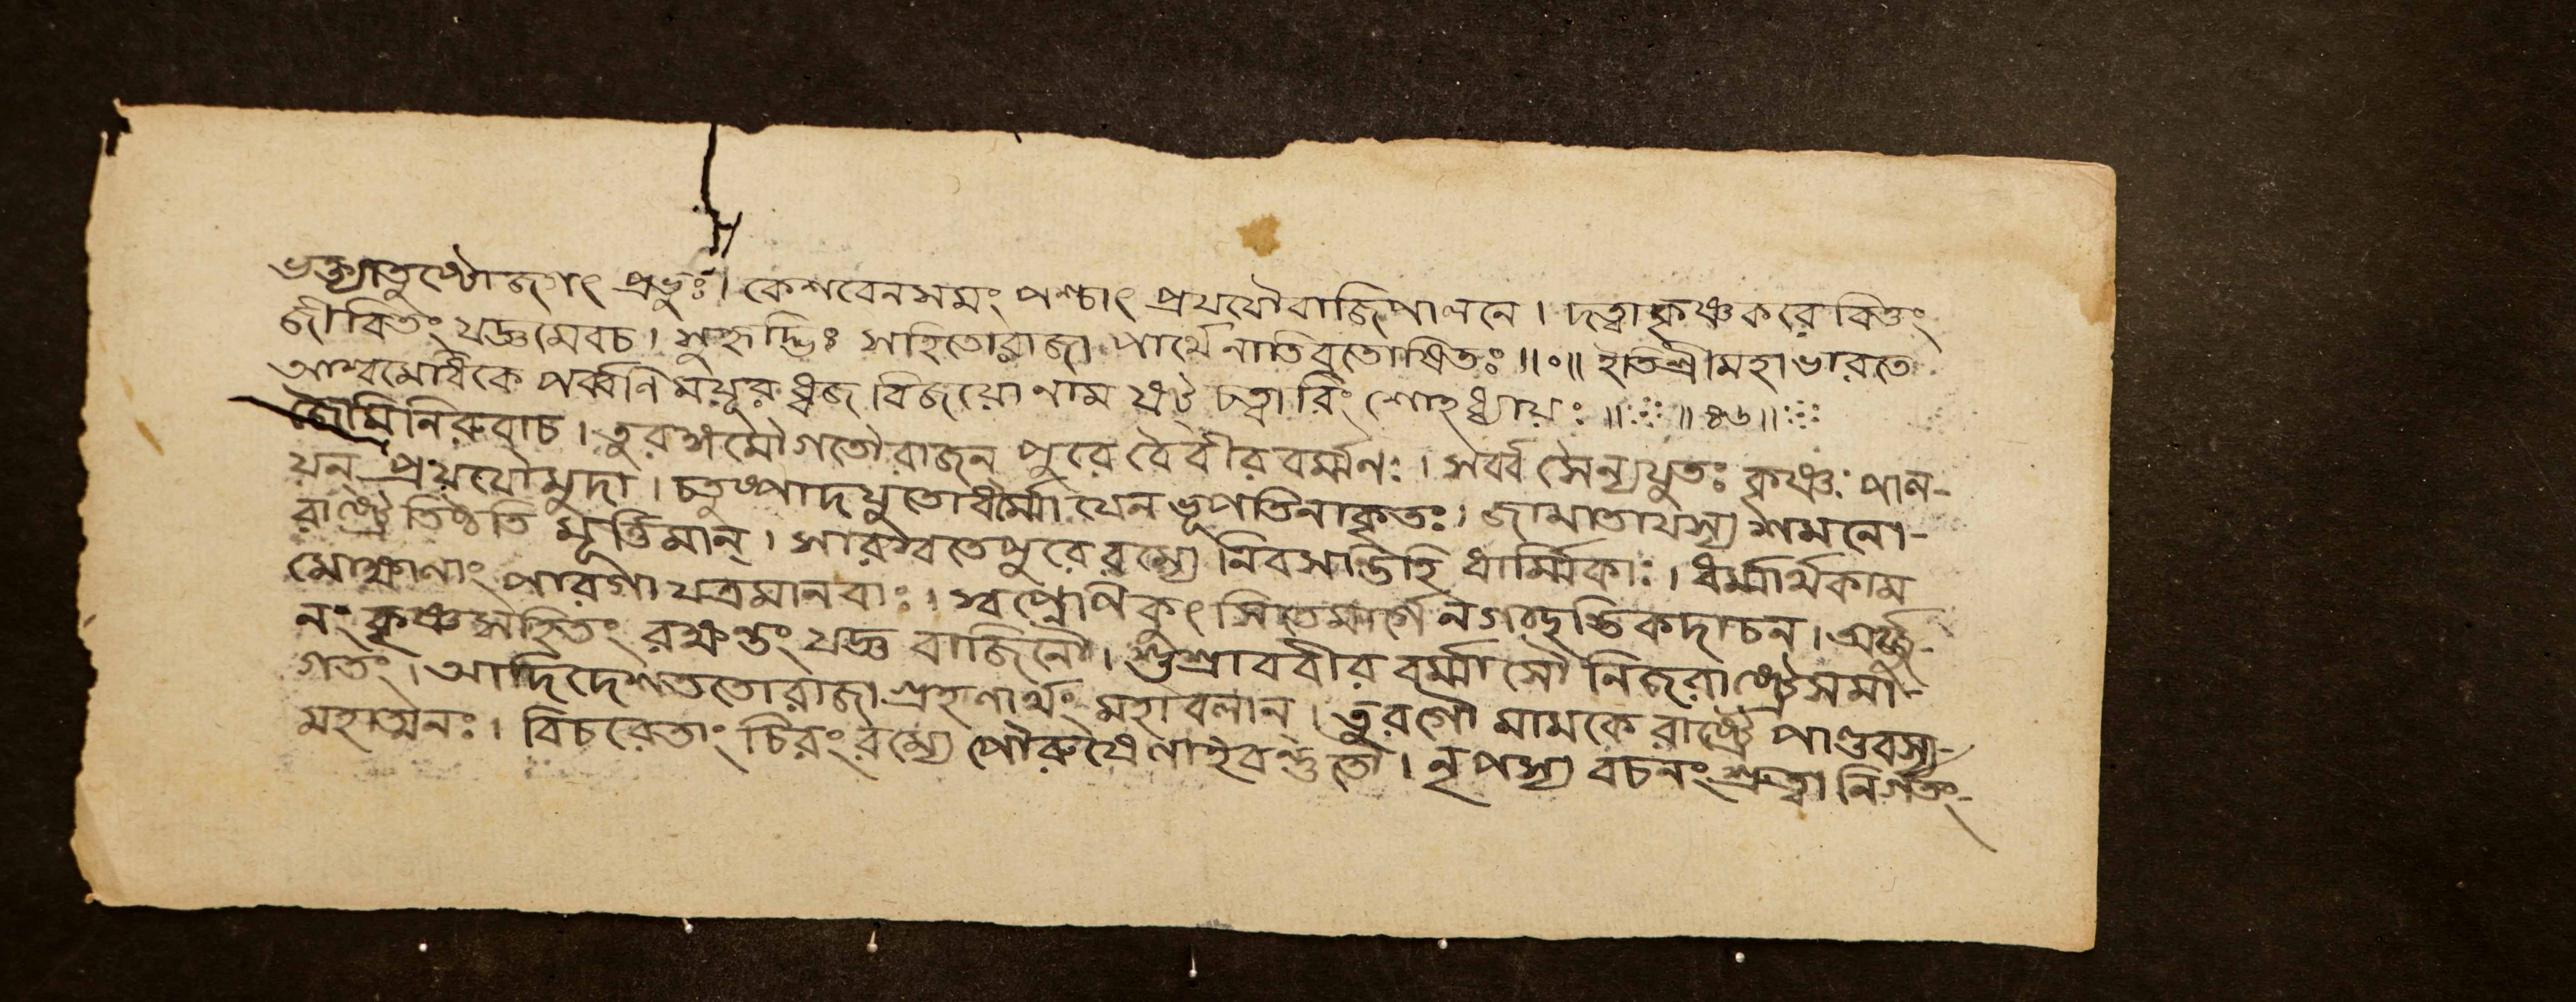 ভক্ত্যাতুষ্টোজগৎ প্রভুঃ। কেশবেনসমং পশ্চাৎ প্রযযৌবাজিপালনে। দত্বাকৃষ্ণকরে বিত্তং
জীবিতং যজ্ঞমেবচ। সুহৃদ্ভিঃ সহিতোরাজা পার্থেনাতিবৃতোষিতঃ॥০॥ ইতিশ্রীমহাভারতে
আশ্বমেধিকে পর্ব্বণি ময়ূরধ্বজ বিজয়োনাম ষট্ চত্বারিং শোহধ্যায়ঃ॥ ॥৪৬॥
জৈমিনিরুবাচ। তুরঙ্গমৌগতৌরাজন্ পুরে বৈবীরবর্ম্মণঃ। সর্ব্বসৈন্যযুতঃ কৃষ্ণঃ পাল-
য়ন্ প্রযযৌমুদা। চতুষ্পাদযুতোধর্ম্মো যেনভূপতিনাকৃতঃ। জামাতাযস্য শমনো-
রাষ্ট্রে তিষ্ঠতি মূর্ত্তিমান্। সারস্বতেপুরেরম্যে নিবসন্তিহি ধার্ম্মিকাঃ। ধর্ম্মার্থকাম
মোক্ষাণাং পারগা যত্রমানবাঃ। স্বপ্নেপিকুৎসিতেমার্গেনগচ্ছন্তিকদাচন। অর্জ্জু-
নং কৃষ্ণসহিতং রক্ষন্তং যজ্ঞ বাজিনৌ। শুশ্রাববীরবর্ম্মাসৌ নিজরাষ্ট্রেসমা-
গতং। আদিদেশততোরাজা গ্রহণার্থং মহাবলান্। তুরগৌ মামকে রাষ্ট্রে পাণ্ডবস্য-
মহাত্মনঃ। বিচরেতাং চিরং রম্যে পৌরুষেণাহবন্তুতৌ। নৃপস্য বচনং শ্রুত্বা নির্গতং-